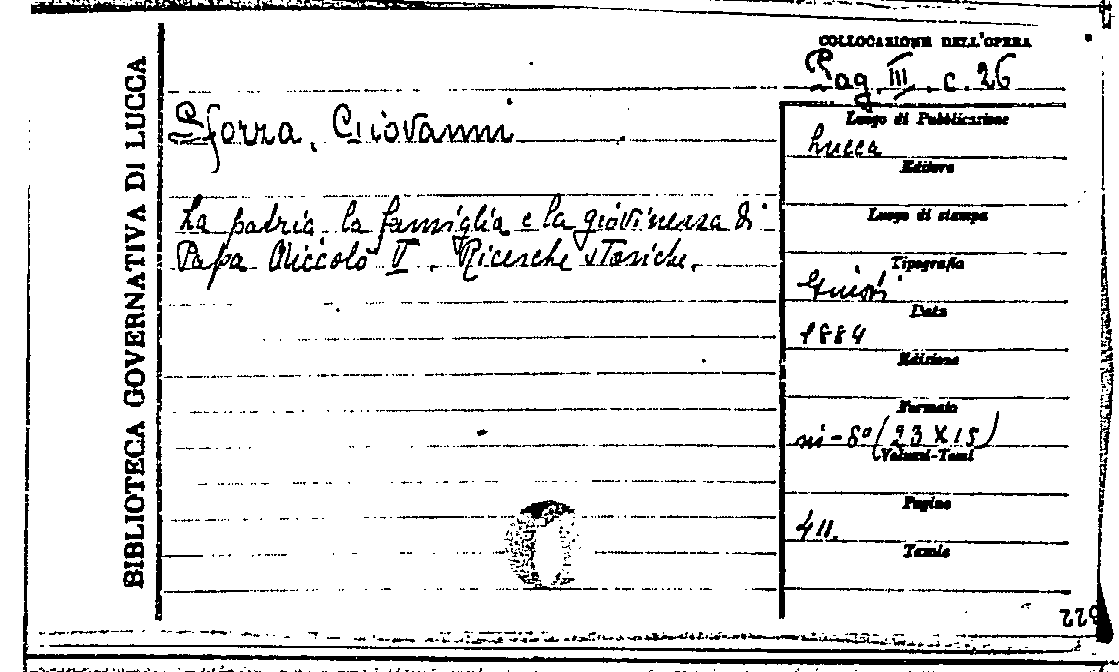 BIBLIOTECA GOVERNATIVA DI LUCCA
COLLOCAZIONE DELL'OPERA
Pag. III. c. 26
Sforza, Giovanni
La patria la famiglia e la giovinezza di
Papa Niccolò V. Ricerche storiche.
Luogo di Pubblicazione
Lucca
Editore
Luogo di stampa
Tipografia
Giusti
Data
1884
Edizione
Formato
in-8° (23 X 15)
Volumi-Tomi
Pagine
411.
Tavole